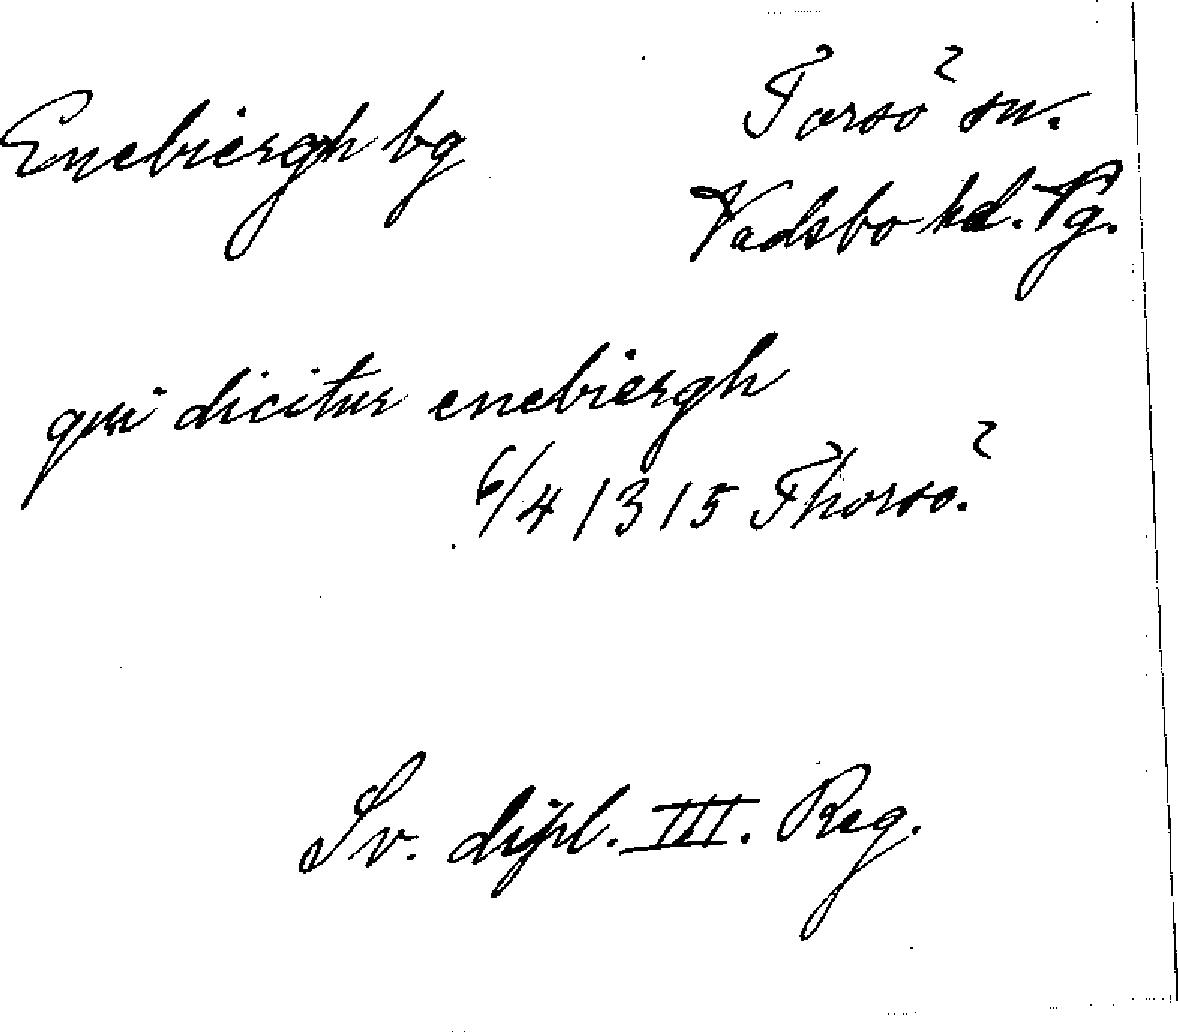 Enebiergh bg
Torsö sn.
Vadsbo hd. Vg.
qui dicitur enebiergh
6/4 1315 Thorsö.
Sv. dipl. III. Reg.